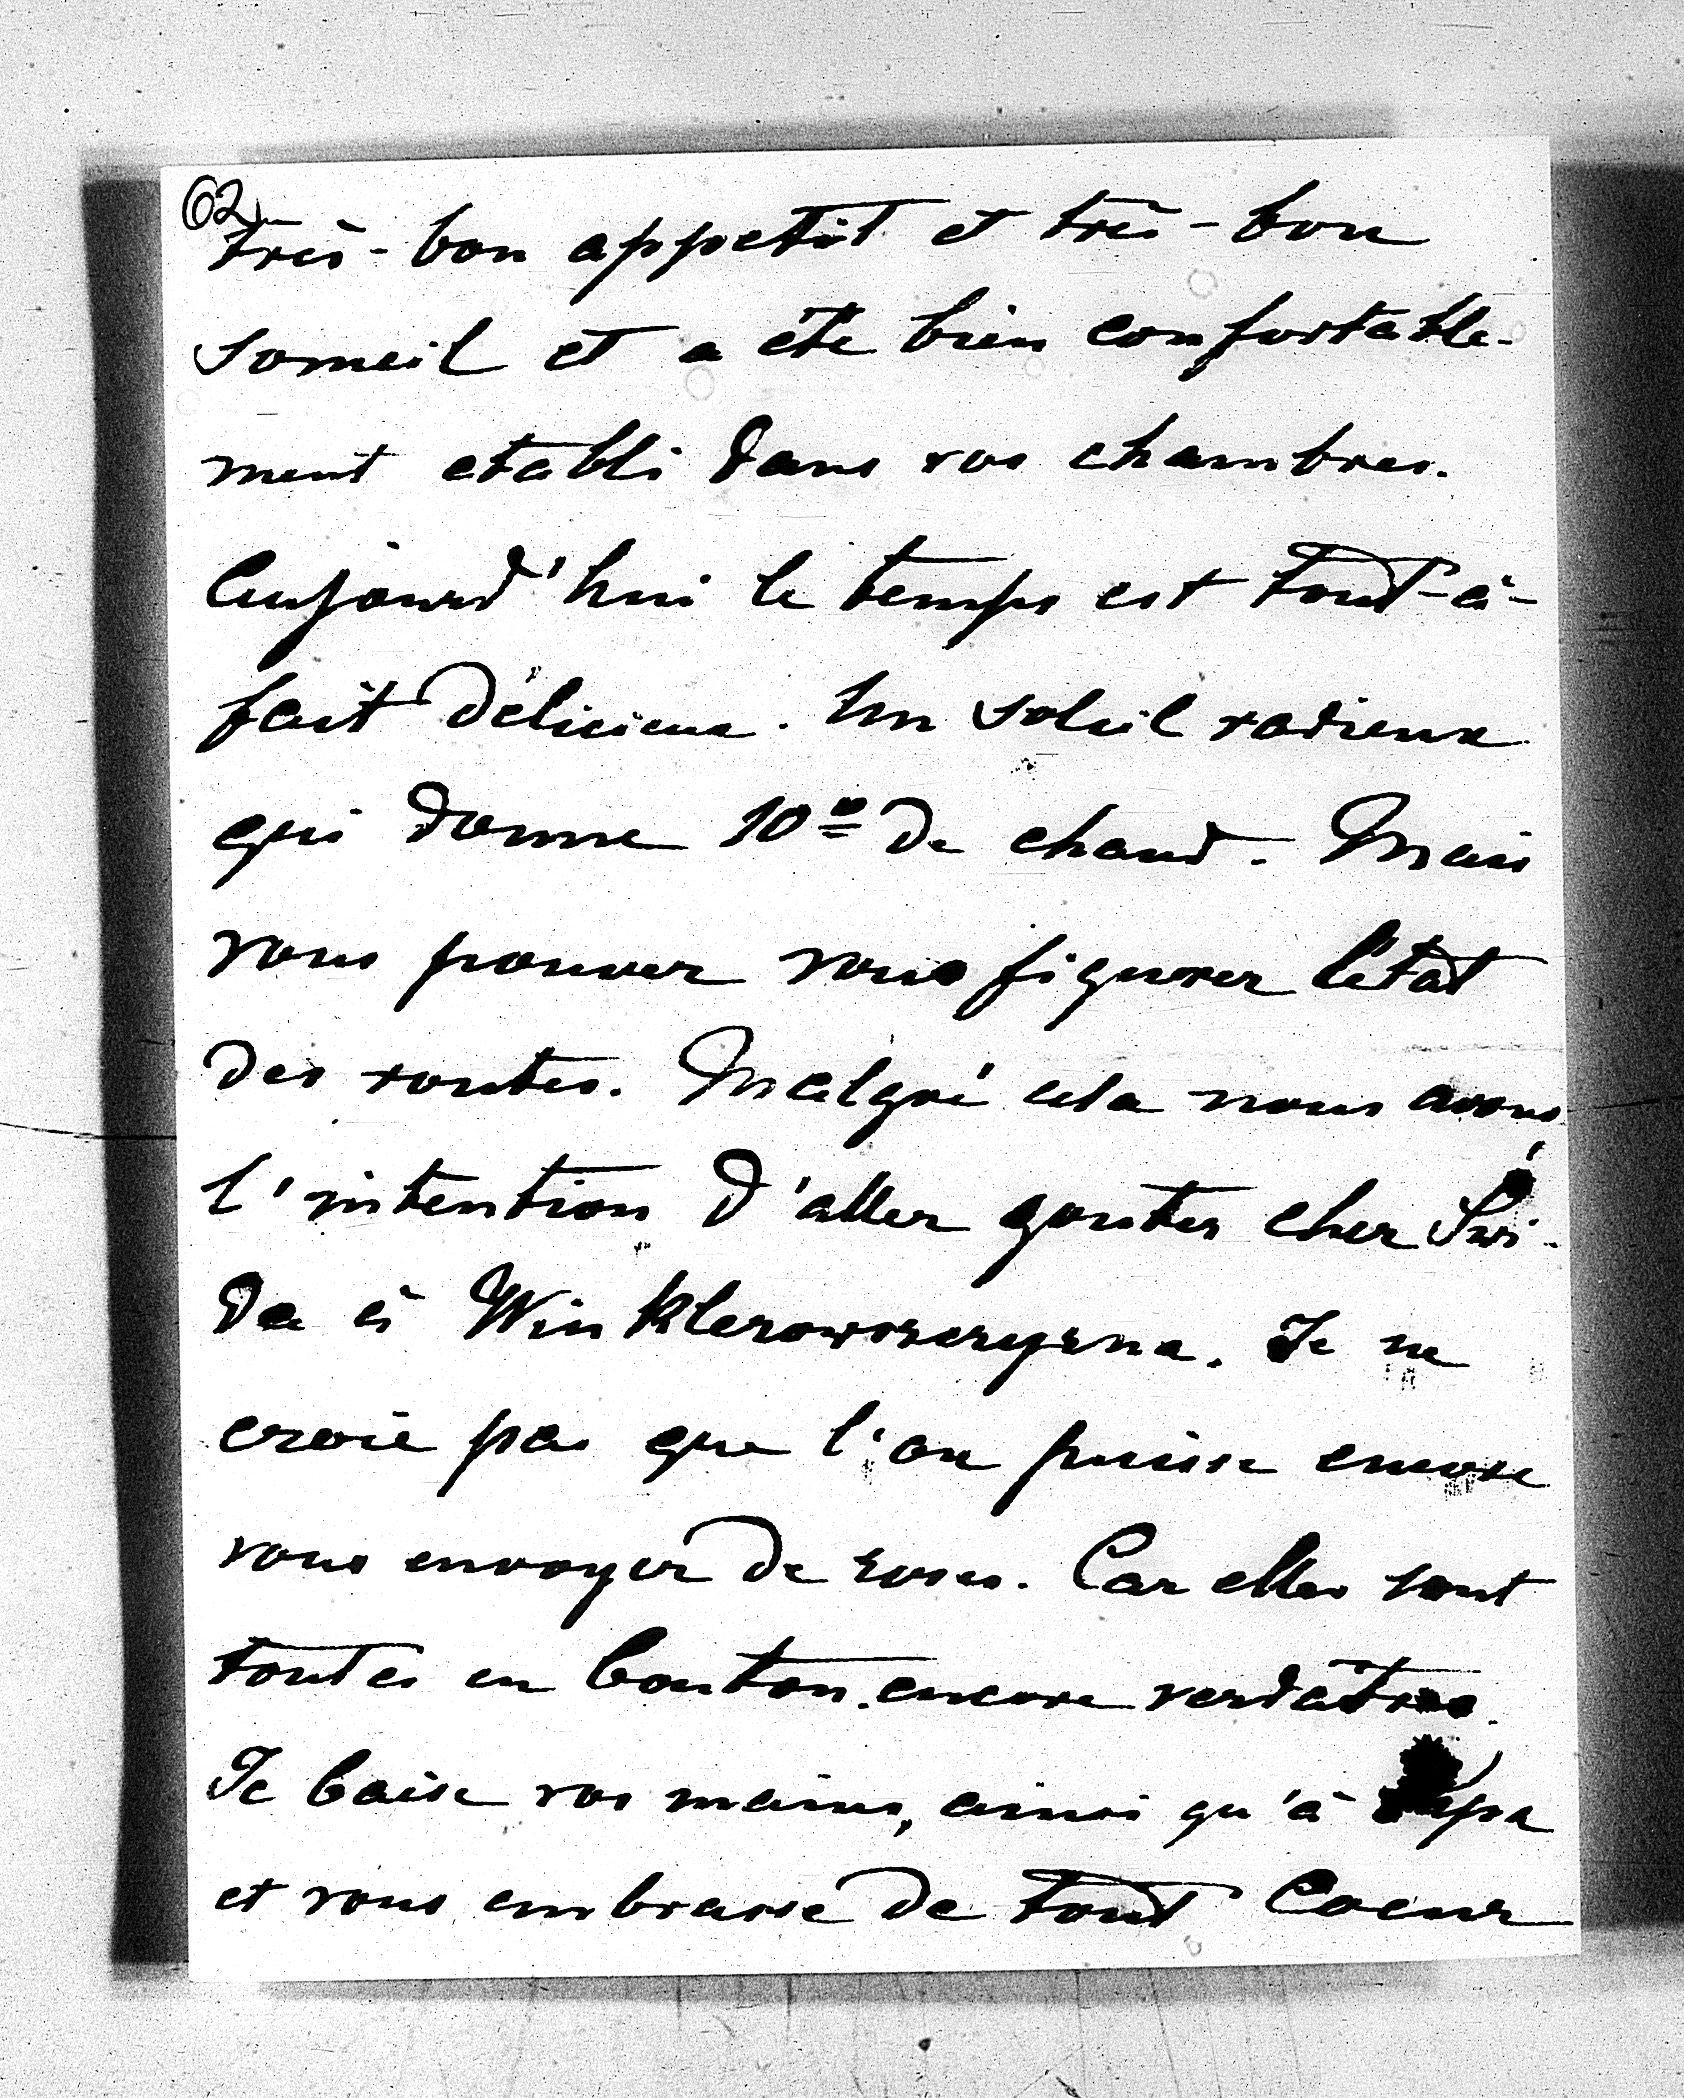 62)
très-bon appetit et très-bon
someil et a été bien confortable-
ment etabli dans vos chambres.
Aujourd'hui le temps est tout-à-
fait délicieux. Un soleil radieux
qui donne 10º de chaud. Mais
vous pouvez vous figurer l'état
des routes. Malgré cela nous avons
l'intention d'aller gouter chez Swi-
da à Winklerowszczyzna. Je ne
crois pas que l'on puisse encore
vous envoyer de roses. Car elles sont
toutes en bouton encore verdatres.
Je baise vos mains, ainsi qu'à Papa
et vous embrasse de tout Coeur